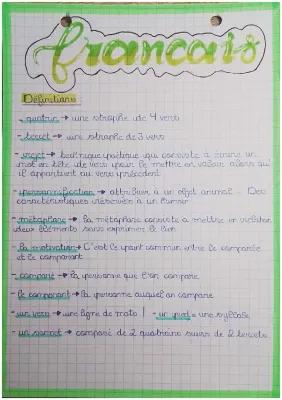 francais
Définitions
- quatrain → une strophe de 4 vers
- tercet → une strophe de 3 vers
- rejet → technique poétique qui consiste à écrire un
mot en tête de vers pour le mettre en valeur alors qu'il
appartient au vers précédent
- personnification → attribuer à un objet animal - Des
caractéristiques réservées à un humain
- métaphore → la métaphore consiste à mettre en relation
deux éléments sans exprimer le lien
- la motivation → C'est le point commun entre le comparée
et le comparant
- comparé → la personne que l'on compare
- le comparant → la personne auquel on compare
- un vers → une ligne de mots ! - un pied = une syllabe
- un sonnet → composé de 2 quatrains suivis de 2 tercets.